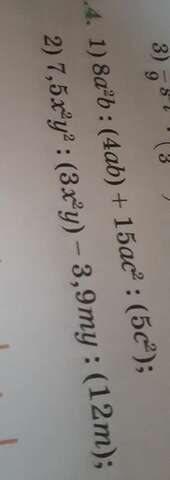 .4. 1) 8a²b : (4ab) + 15ac² : (5c²);
2) 7,5x²y² : (3x²y) − 3,9my : (12m);
3)